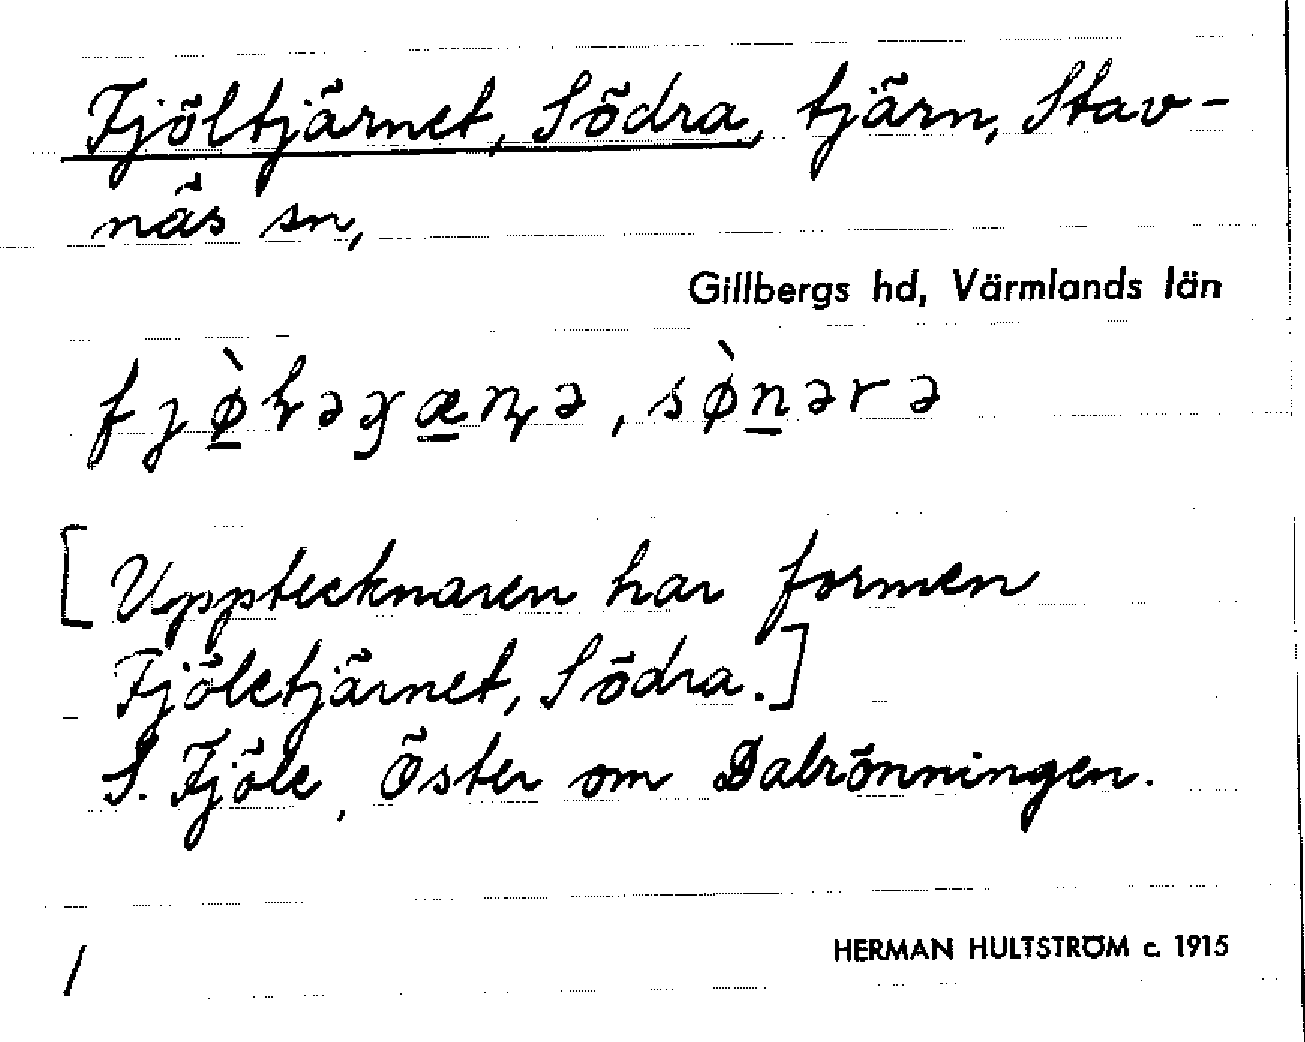 Fjöltjärnet, Södra, tjärn, Stav-
näs sn,
Gillbergs hd, Värmlands län
[Upptecknaren har formen
Fjöletjärnet, Södra.]
S. Fjöle, Öster om Dalrönningen.
HERMAN HULTSTRÖM c. 1915
/